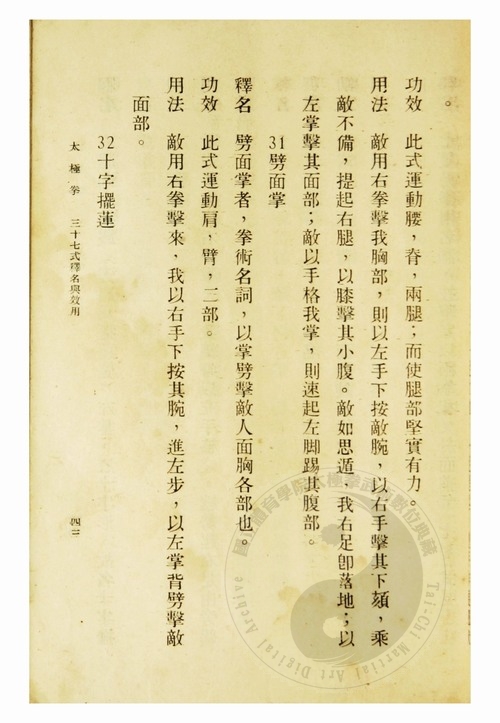 。
功效　此式運動腰，脊，兩腿；而使腿部堅實有力。
用法　敵用右拳擊我胸部，則以左手下按敵腕，以右手擊其下頦，乘
敵不備，提起右腿，以膝擊其小腹。敵如思遁，我右足卽落地；以
左掌擊其面部；敵以手格我掌，則速起左脚踢其腹部。
31劈面掌
釋名　劈面掌者，拳術名詞，以掌劈擊敵人面胸各部也。
功效　此式運動肩，臂，二部。
用法　敵用右拳擊來，我以右手下按其腕，進左步，以左掌背劈擊敵
面部。
32十字擺蓮
太極拳　三十七式釋名與效用
四三
Tai-Chi Martial Art Digital Archive